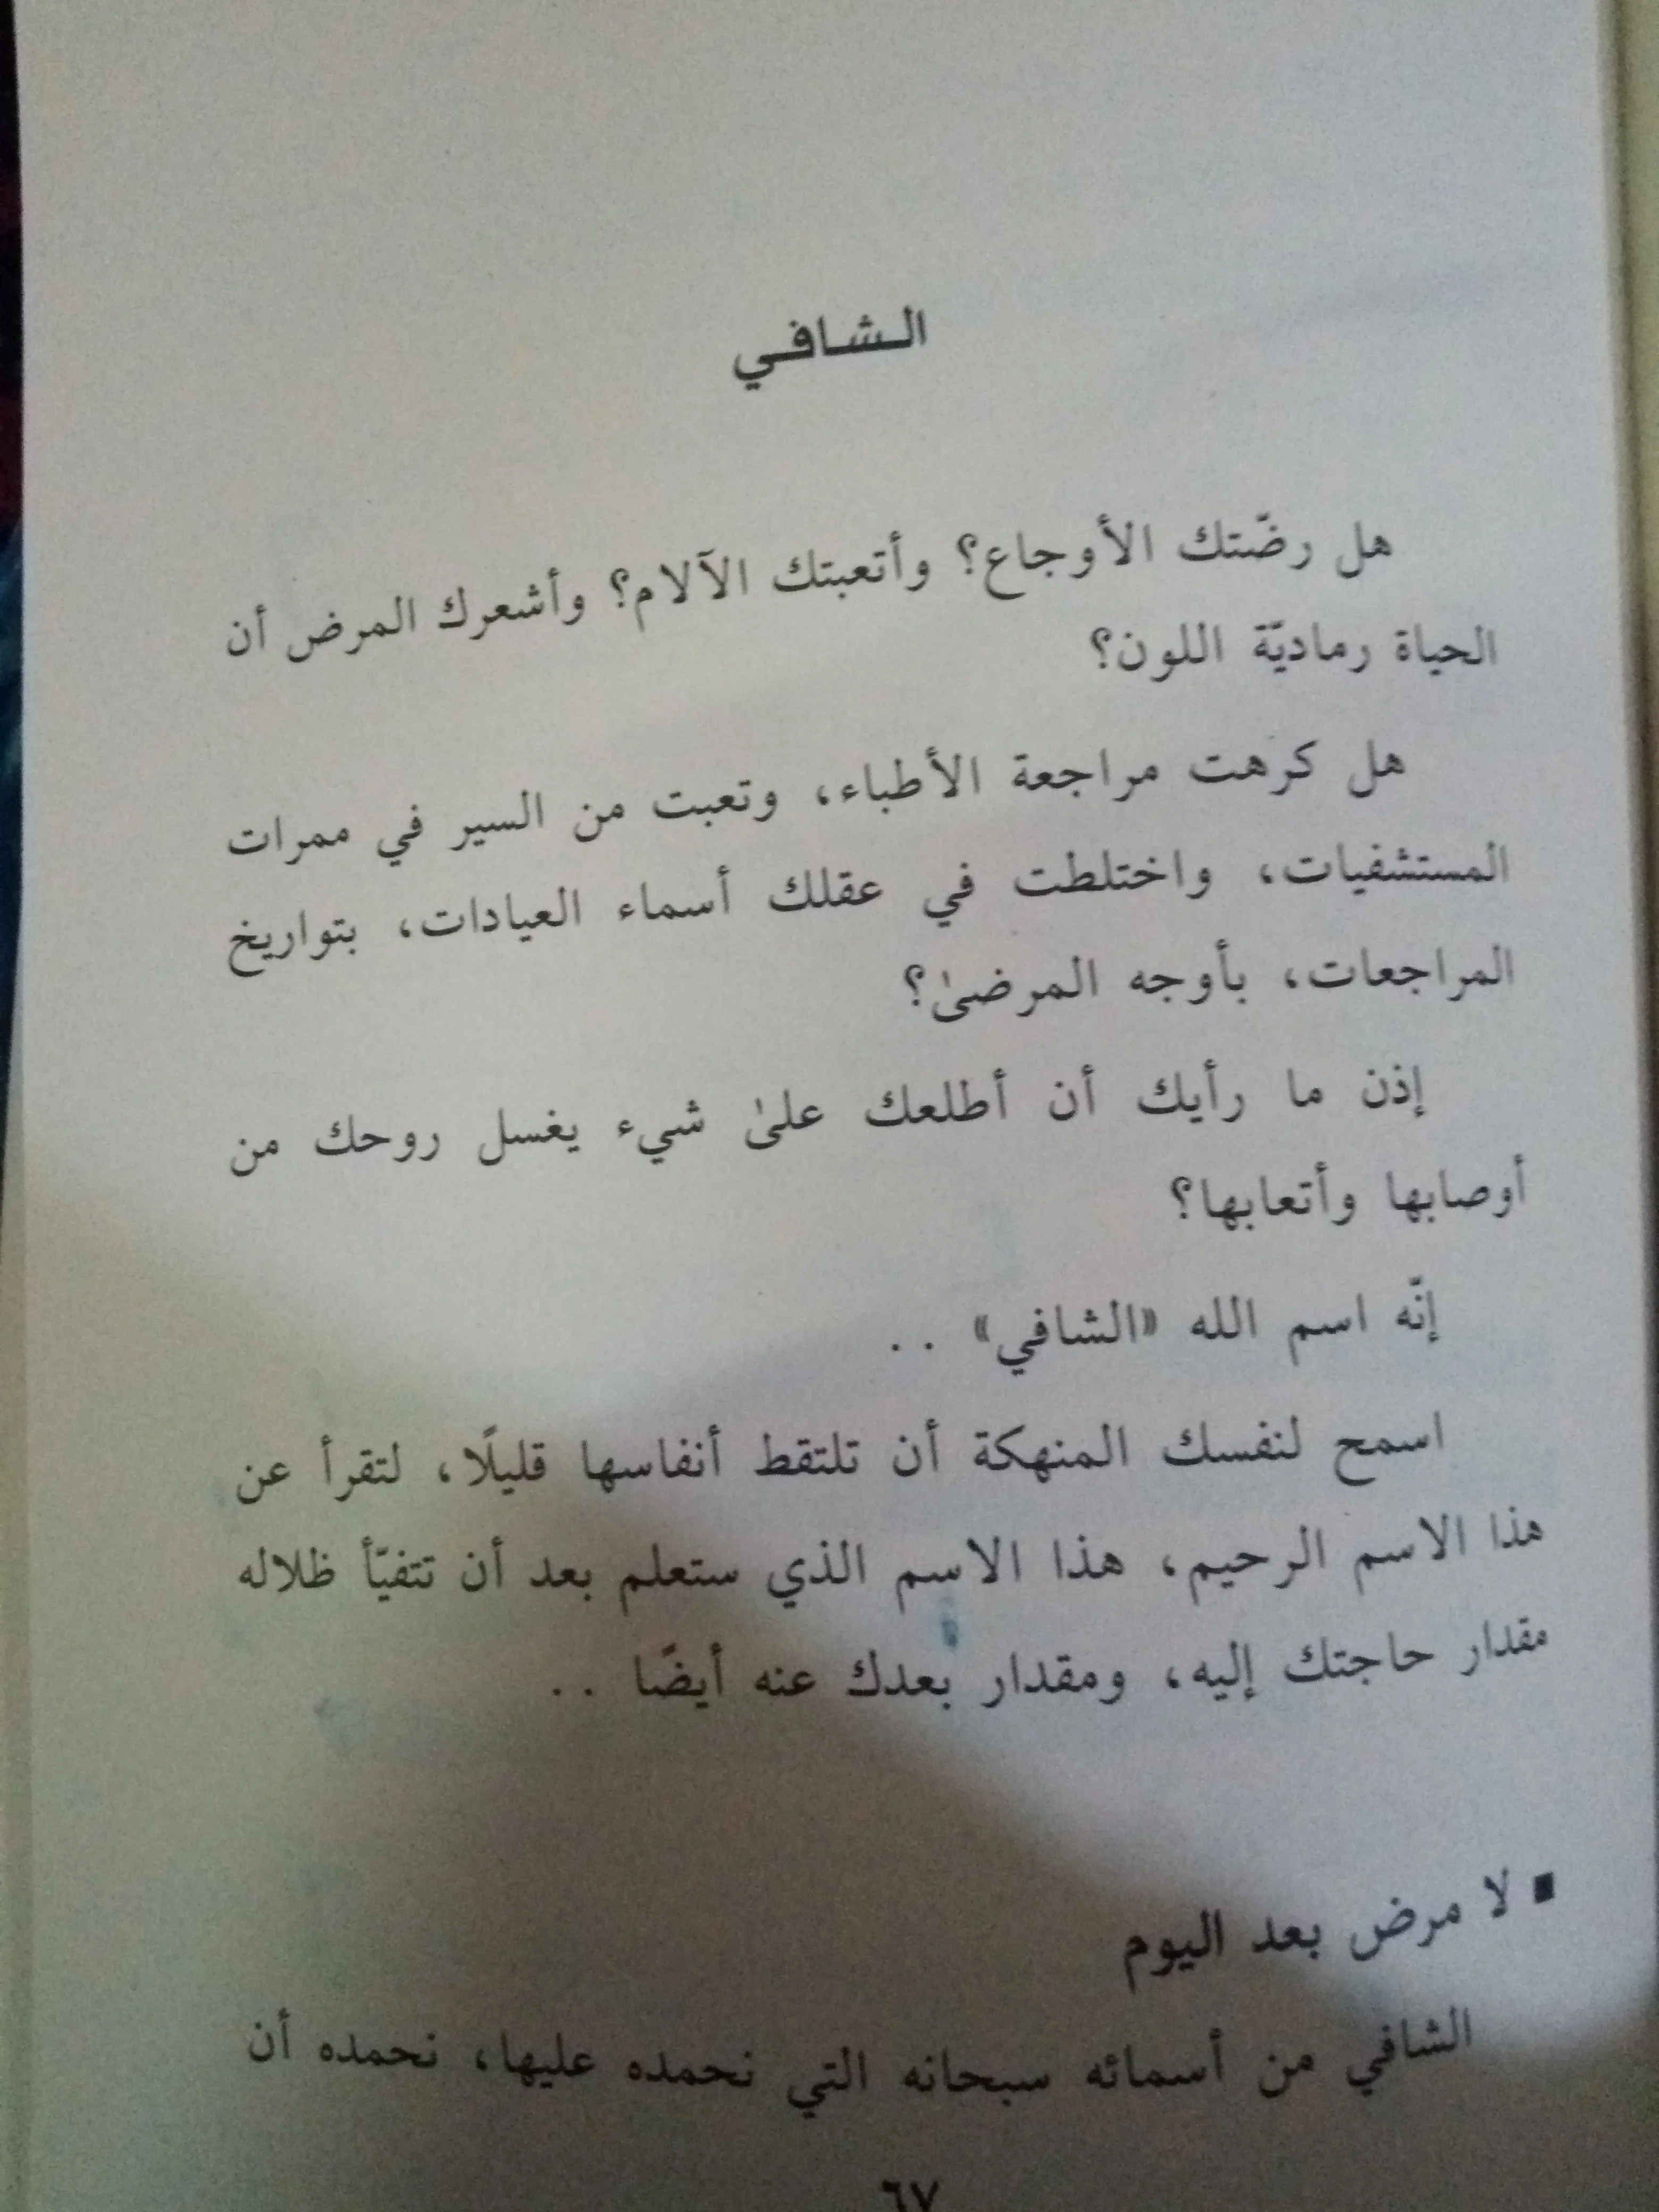 الشافي
هل رضّتك الأوجاع؟ وأتعبتك الآلام؟ وأشعرك المرض أن
الحياة رماديّة اللون؟
هل كرهت مراجعة الأطباء، وتعبت من السير في ممرات
المستشفيات، واختلطت في عقلك أسماء العيادات، بتواريخ
المراجعات، بأوجه المرضىٰ؟
إذن ما رأيك أن أطلعك علىٰ شيء يغسل روحك من
أوصابها وأتعابها؟
إنّه اسم الله «الشافي» . .
اسمح لنفسك المنهكة أن تلتقط أنفاسها قليلًا، لتقرأ عن
هذا الاسم الرحيم، هذا الاسم الذي ستعلم بعد أن تتفيّأ ظلاله
مقدار حاجتك إليه، ومقدار بعدك عنه أيضًا . .
■ لا مرض بعد اليوم
الشافي من أسمائه سبحانه التي نحمده عليها، نحمده أن
٦٧